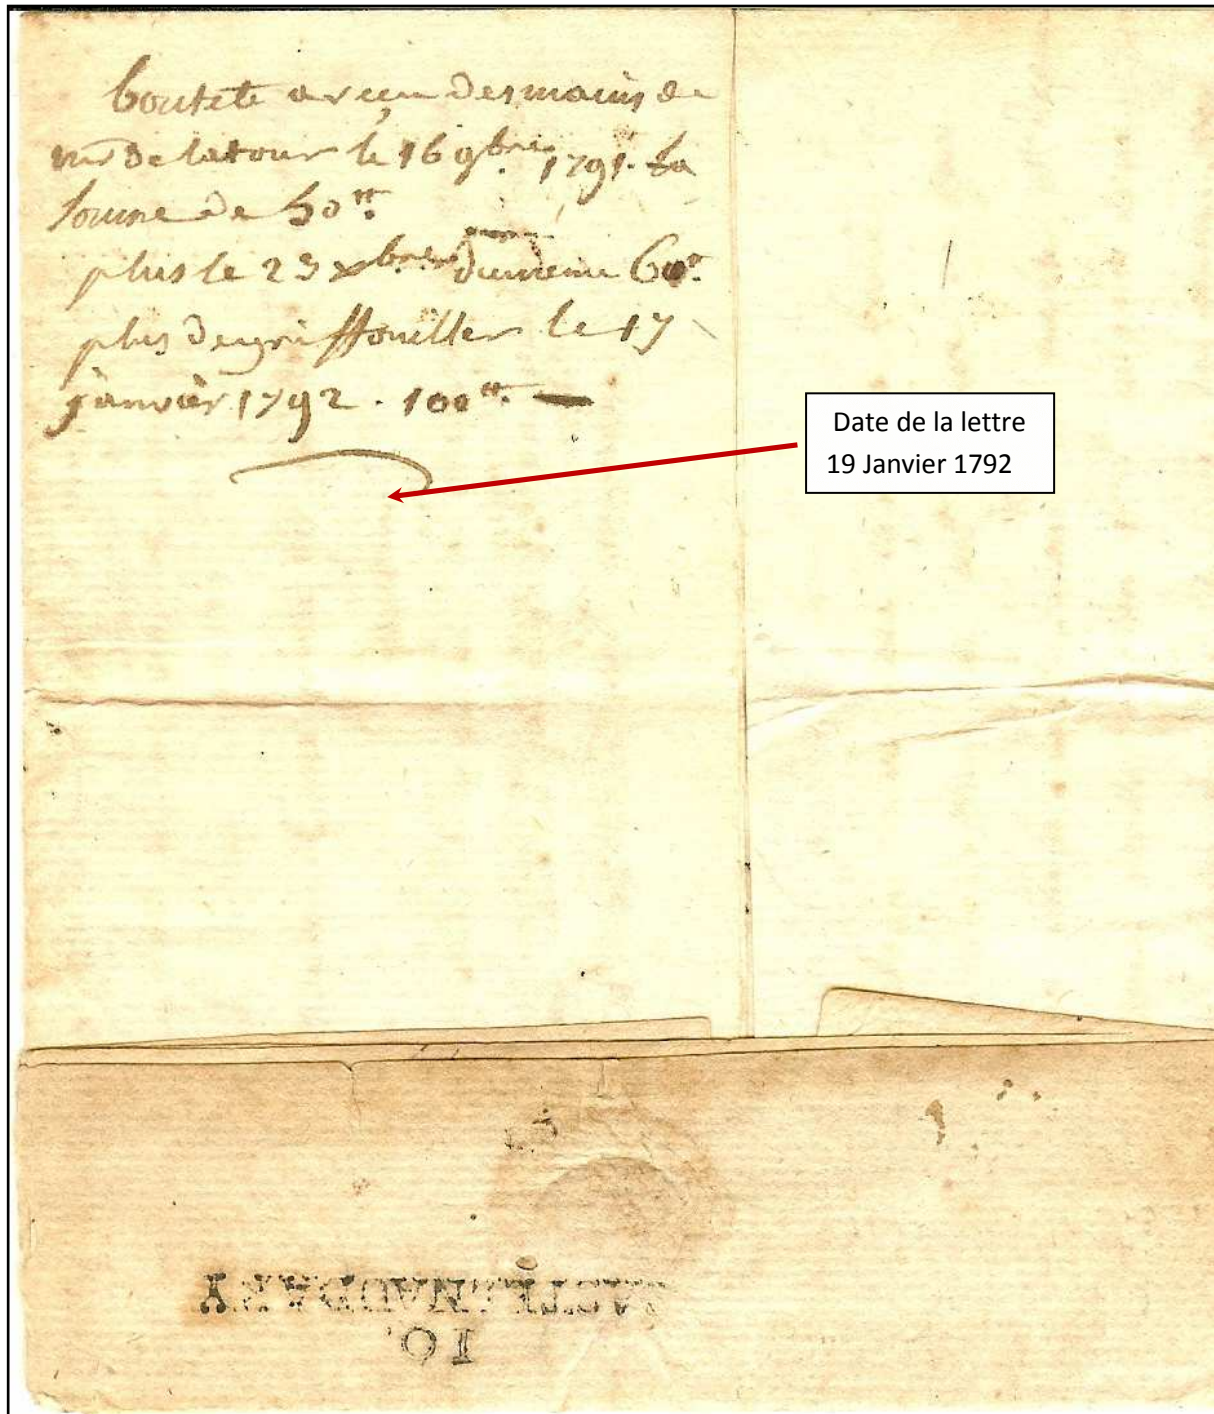 boutete a reçu des mains de
mr De latour le 16 9bre 1791. la
somme de 50tt.
plus le 23 xbre du meme 60tt.
plus de griffouiller le 17
janvier 1792. 100tt.
Date de la lettre
19 Janvier 1792
10